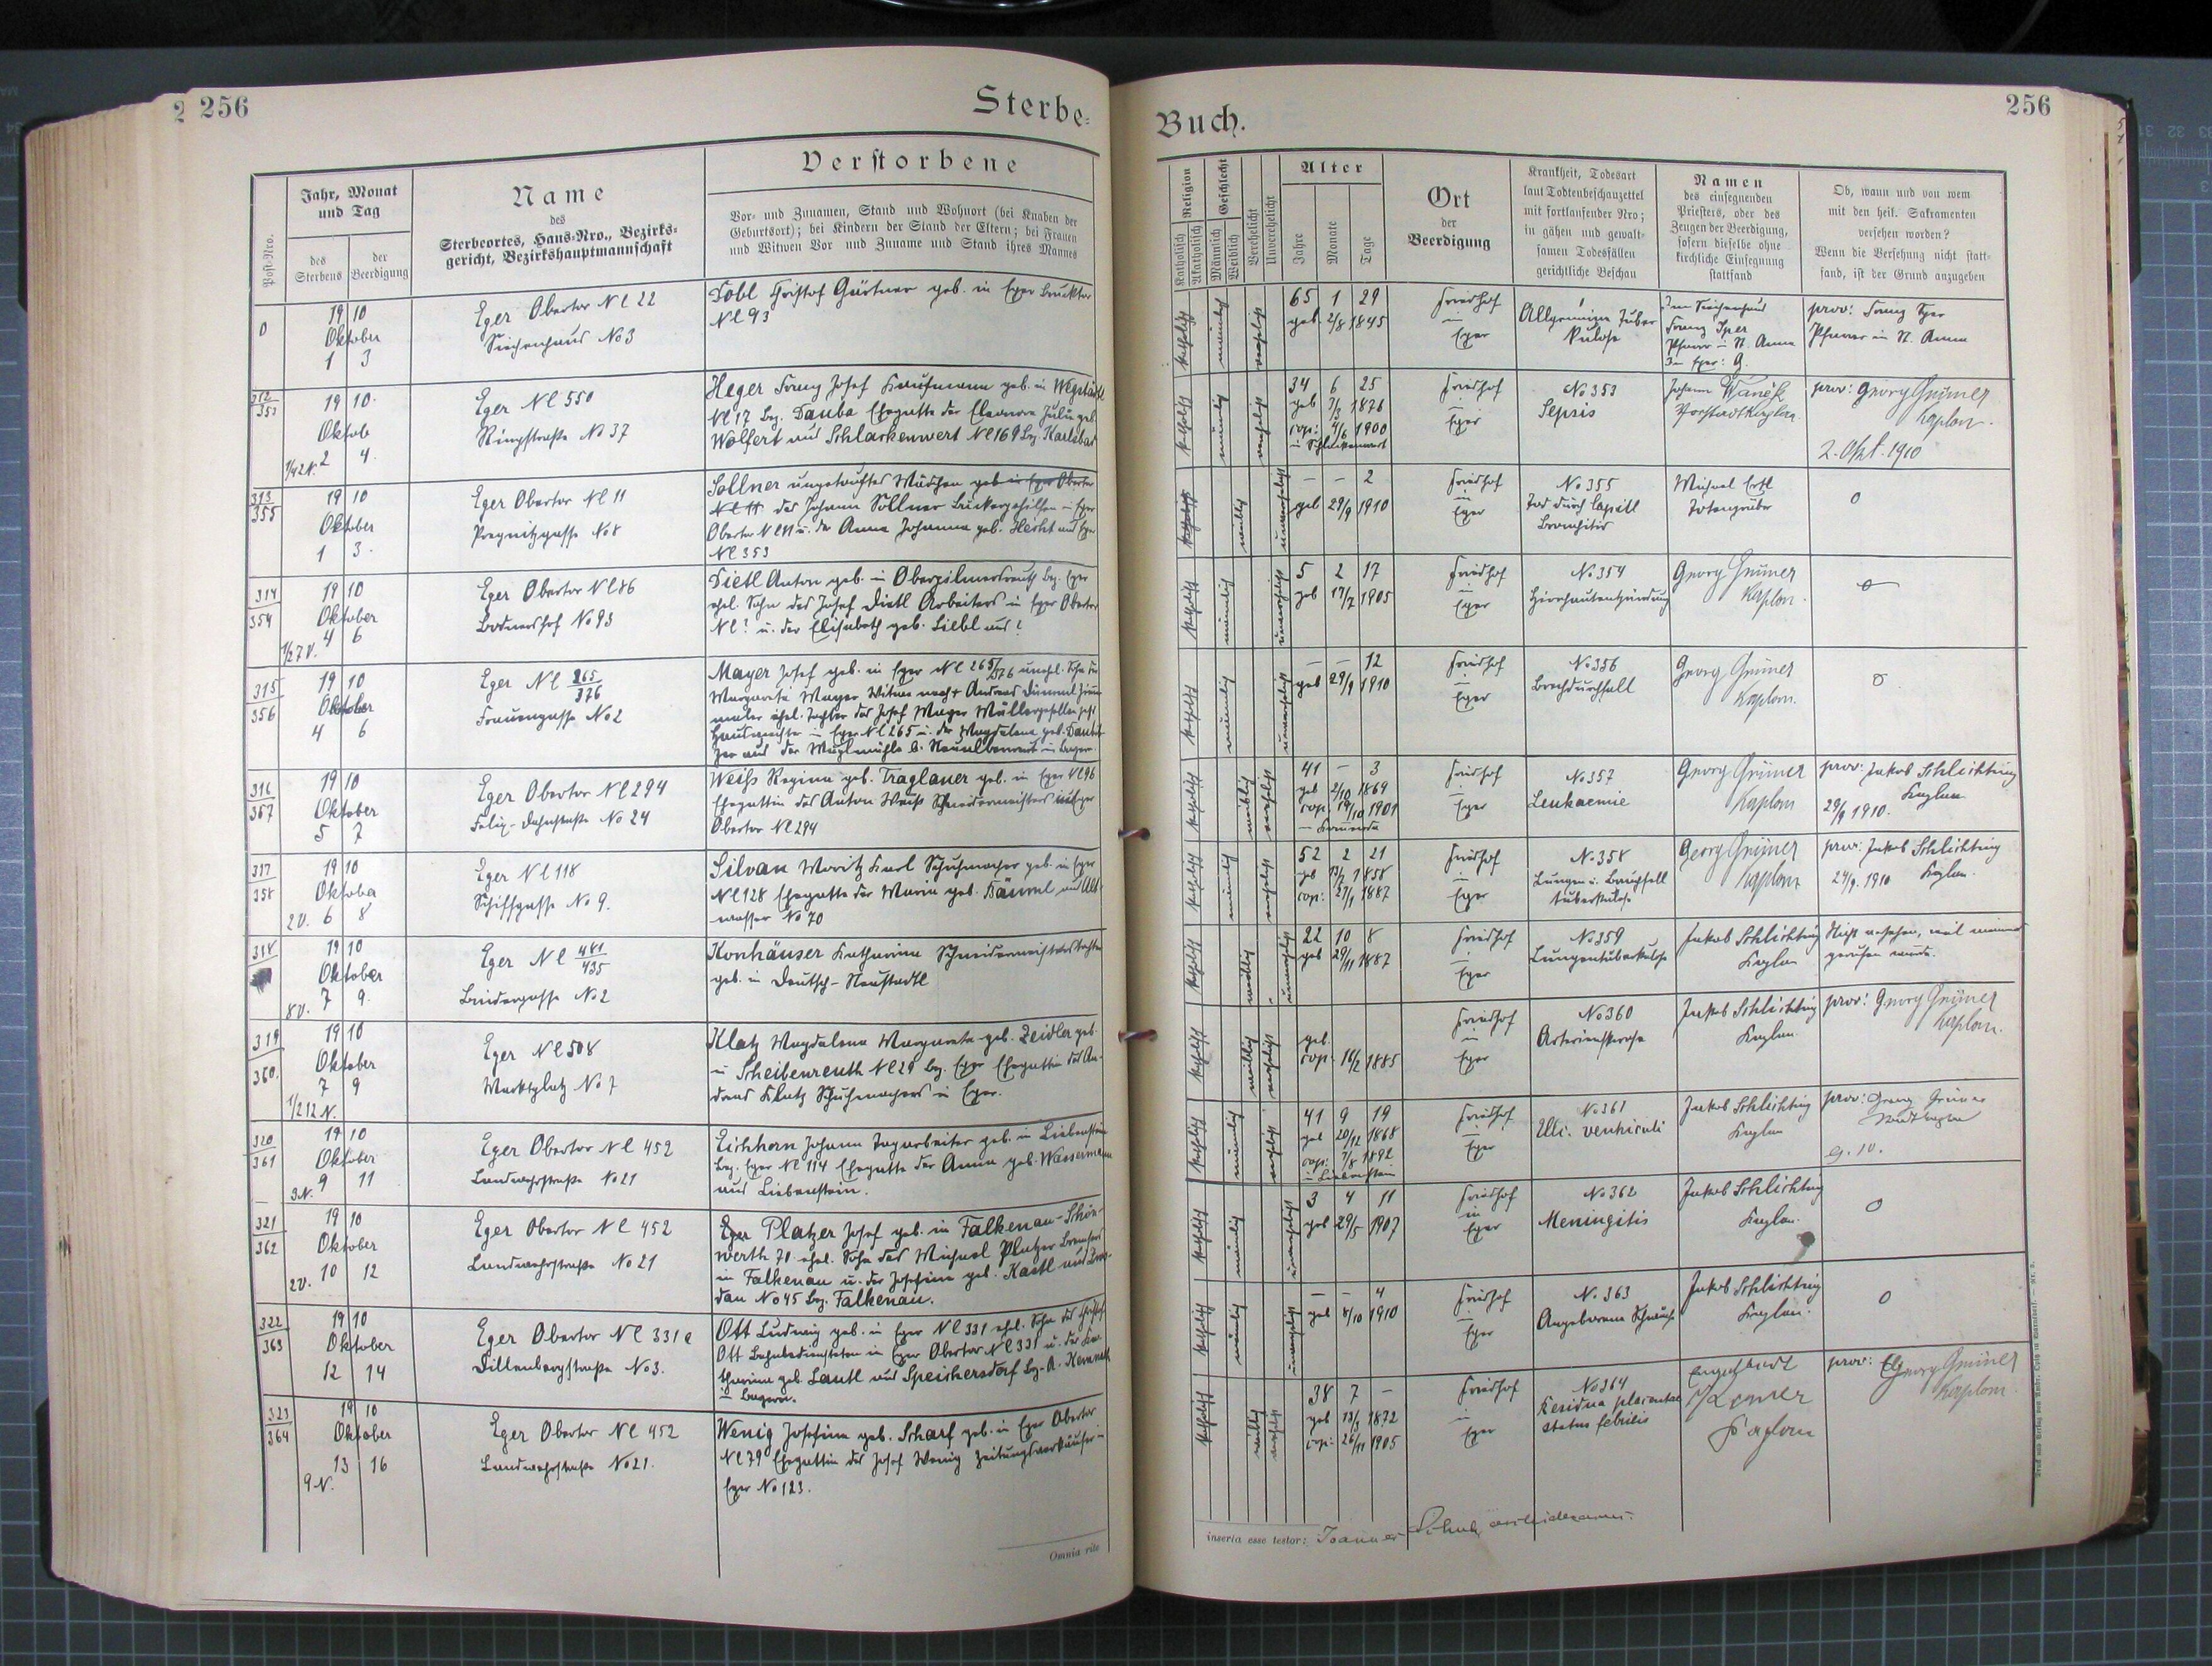 2 256
Sterbe-
Jahr, Monat
und Tag
Verstorbene
Name
des
Sterbeortes, Haus-Nro., Bezirks-
gericht, Bezirkshauptmannschaft
Vor- und Zunamen, Stand und Wohnort (bei Knaben der
Geburtsort); bei Kindern der Stand der Eltern; bei Frauen
und Witwen Vor und Zuname und Stand ihres Mannes
Post-Nro.
des
Sterbens
der
Beerdigung
0
19 10
Oktober
1 3
Eger Obertor NC 22
Siechenhaus No 3
Gärtner geb. in Eger Brucktor
NC 93
352
353
19 10.
Oktob
1/42 N. 2 4.
Eger NC 550
Ringstraße No 37
Heger Franz Josef Kaufmann geb. in Wegstädtl
NC 17 Bez. Dauba Ehegatte der Eleonora Julie geb.
Wolfert aus Schlackenwert NC 169 Bez. Karlsbad
313
355
19 10
Oktober
1 3.
Eger Obertor NC 11
No 8
Sollner ungetauftes Mädchen geb. in Eger Obertor
NC 11 des Johann Sollner Bäckergehilfen in Eger
Obertor NC 11 u. der Anna Johanna geb. aus Eger
NC 353
314
354
19 10
Oktober
1/27 V. 4 6
Eger Obertor NC 86
No 93
Dietl Anton geb. in Bez. Eger
ehel. Sohn des Josef Dietl Arbeiters in Eger Obertor
NC ? u. der Elisabeth geb. Liebl aus ?
315
356
19 10
Oktober
4 6
Eger NC 265
376
Frauengasse No 2
Mayer Josef geb. in Eger NC 265/376 unehel. Sohn der
Margareta Mayer Witwe nach + Andreas
ehel. Tochter des Josef Mayer Müllergesellen jetzt
in Eger NC 265 u. der Magdalena geb.
aus der b. Neualbenreut in Bayern.
316
357
19 10
Oktober
5 7
Eger Obertor NC 294
Felix-Dahnstraße No 24
Weihs Regina geb. Traglauer geb. in Eger NC 96
Ehegattin des Anton Weihs Schneidermeisters in Eger
Obertor NC 294
317
358
19 10
Oktober
2 V. 6 8
Eger NC 118
Schiffgasse No 9.
Silvan Moritz Karl Schuhmacher geb. in Eger
NC 128 Ehegatte der Maria geb. Bäuml aus Alt-
wasser No 70
318
19 10
Oktober
8 V. 7 9.
Eger NC 481
435
Bindergasse No 2
Konhäuser Katharina Schneidermeisterstochter
geb. in Deutsch-Neustadtl
319
360.
19 10
Oktober
7 9
1/212 N.
Eger NC 508
Marktplatz No 7
Klatz Magdalena Margareta geb. Zeidler geb.
in Scheibenreuth NC 29 Bez. Eger Ehegattin des An-
dreas Klatz Schuhmachers in Eger.
320
361
19 10
Oktober
3 N. 9 11
Eger Obertor NC 452
Landwehrstraße No 21
Eichhorn Johann Tagarbeiter geb. in Liebenstein
Bez. Eger NC 114 Ehegatte der Anna geb. Wassermann
aus Liebenstein.
321
362
19 10
Oktober
2 V. 10 12
Eger Obertor NC 452
Landwehrstraße No 21
Eger Platzer Josef geb. in Falkenau-Schön-
werth 70. ehel. Sohn des Michael Platzer
in Falkenau u. der Josefine geb. Kastl aus
dau No 45 Bez. Falkenau.
322
363
19 10
Oktober
12 14
Eger Obertor NC 331 a
Dillenbergstraße No 3.
Ott Ludwig geb. in Eger NC 331 ehel. Sohn des
Ott Bahnbediensteten in Eger Obertor NC 331 u. der Ka-
tharina geb. Lautl aus Speichersdorf Bez. A. Kemnath
in Bayern.
323
364
19 10
Oktober
13 16
9 N.
Eger Obertor NC 452
Landwehrstraße No 21.
Wenig Josefina geb. Scharf geb. in Eger Obertor
NC 79 Ehegattin des Josef Wenig Zeitungsverkäufer in
Eger No 123.
Omnia rite
Buch.
256
Religion
Katholisch
Akatholisch
Geschlecht
Männlich
Weiblich
Verehelicht
Unverehelicht
Alter
Jahre
Monate
Tage
Ort
der
Beerdigung
Krankheit, Todesart
laut Todtenbeschauzettel
mit fortlaufender Nro;
in gähen und gewalt-
samen Todesfällen
gerichtliche Beschau
Namen
des einsegnenden
Priesters, oder des
Zeugen der Beerdigung,
sofern dieselbe ohne
kirchliche Einsegnung
stattfand
Ob, wann und von wem
mit den heil. Sakramenten
versehen worden?
Wenn die Versehung nicht statt-
fand, ist der Grund anzugeben
katholisch männlich verehelicht
65 1 29
geb. 2/8 1845
Friedhof
in
Eger
Allgemeine Tuber
kulose
Im Siechenhaus
Franz
Pfarrer in St. Anna
In Eger: G.
prov: Franz
Pfarrer in St. Anna
katholisch männlich verehelicht
34 6 25
geb 1876
cop: 4/6 1900
in Schlackenwert
Friedhof
in
Eger
No 353
Sepsis
Johann Wanek
Stadtkaplan
prov: Georg Grüner
Kaplan.
2. Okt. 1910
katholisch weiblich unverehelicht
- - 2
geb 29/9 1910
Friedhof
in
Eger
No 355
Tod durch Capill
Bronchitis
Michael Ertl
Totengräber
0
katholisch männlich unverehelicht
5 2 17
geb 17/7 1905
Friedhof
in
Eger
No 354
Hirnhautentzündung
Georg Grüner
Kaplan.
0
katholisch männlich unverehelicht
- - 12
geb 29/9 1910
Friedhof
in
Eger
No 356
Brechdurchfall
Georg Grüner
Kaplan.
0
katholisch weiblich verehelicht
41 - 3
geb 2/10 1869
cop: 19/10 1901
Friedhof
in
Eger
No 357
Leukaemie
Georg Grüner
Kaplan
prov: Jakob Schlichting
Kaplan
29/9 1910.
katholisch männlich verehelicht
52 2 21
geb 1858
cop: 27/9 1887
Friedhof
in
Eger
No 358
Lungen u. Bauchfell
tuberkulose
Georg Grüner
Kaplan
prov: Jakob Schlichting
24/9. 1910 Kaplan.
katholisch weiblich unverehelicht
22 10 8
geb 29/11 1887
Friedhof
in
Eger
No 359
Lungentuberkulose
Jakob Schlichting
Kaplan
Nicht versehen, weil niemand
gerufen wurde.
katholisch weiblich verehelicht
geb.
cop: 16/2 1885
Friedhof
in
Eger
No 360
Arteriosklerose
Jakob Schlichting
Kaplan.
prov: Georg Grüner
Kaplan.
katholisch männlich verehelicht
41 9 19
geb 20/12 1868
cop: 7/8 1892
in Liebenstein
Friedhof
in
Eger
No 361
Ulc. ventriculi
Jakob Schlichting
Kaplan
prov: Georg Grüner
Stadtkaplan
9. 10.
katholisch männlich unverehelicht
3 4 11
geb 29/5 1907
Friedhof
in
Eger
No 362
Meningitis
Jakob Schlichting
Kaplan.
0
katholisch männlich unverehelicht
- - 4
geb 8/10 1910
Friedhof
in
Eger
No 363
Angeborene Schwäche
Jakob Schlichting
Kaplan.
0
katholisch weiblich verehelicht
38 7 -
geb 13/3 1872
cop: 26/11 1905
Friedhof
in
Eger
No 364
Residua placentae
status febrilis
Kaplan
prov: Georg Grüner
Kaplan
inserta esse testor: